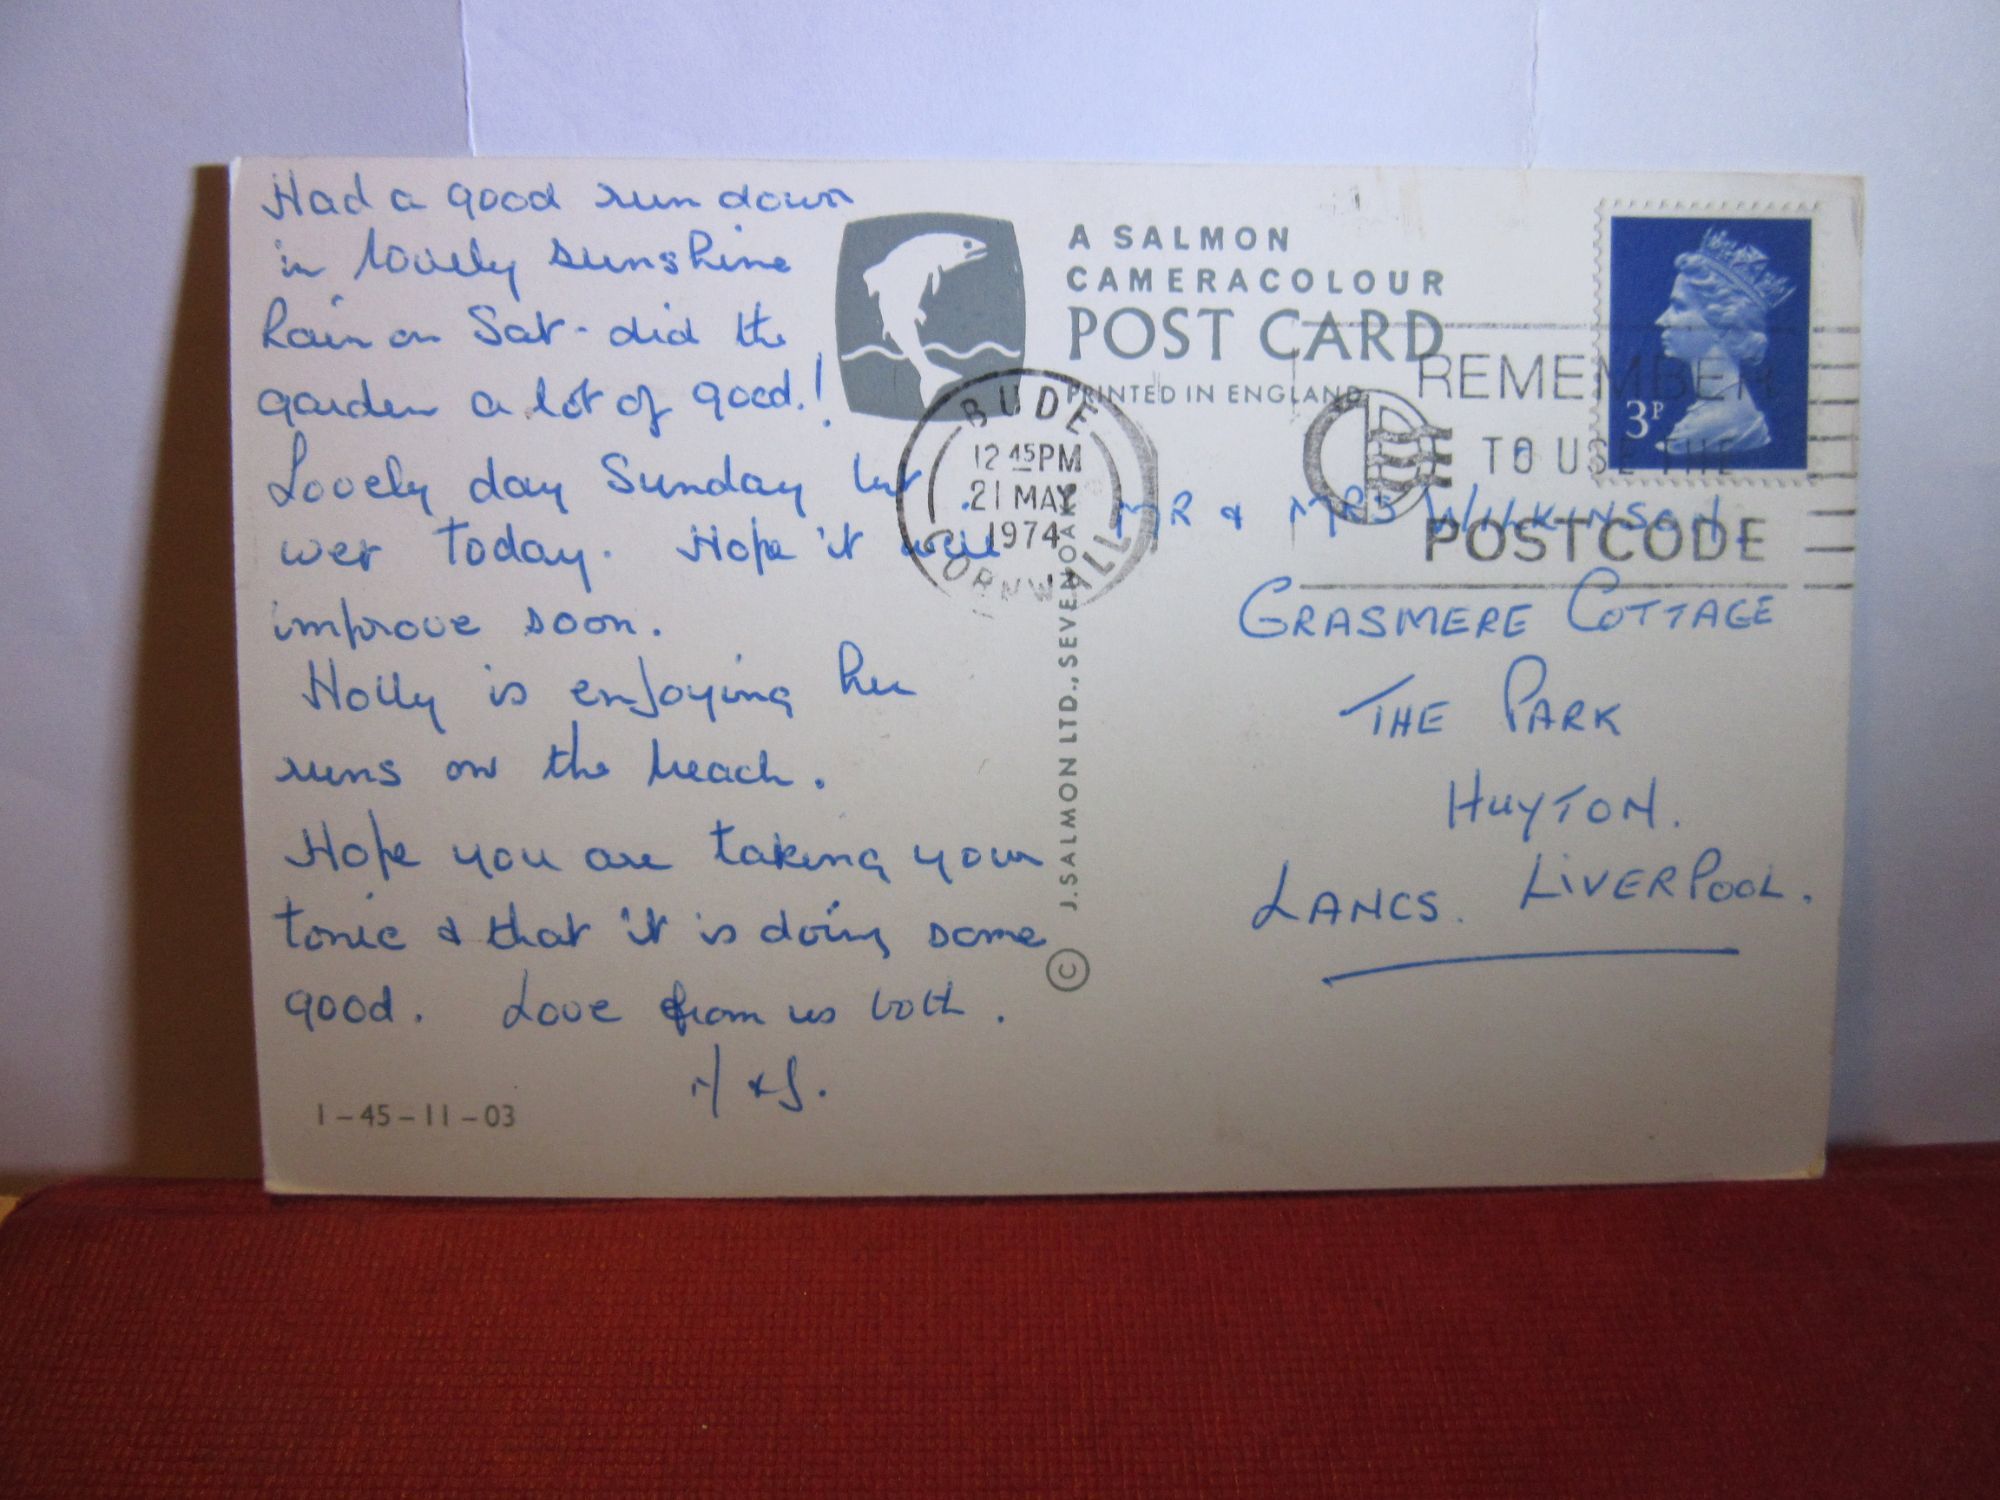 Had a good run down
in lovely sunshine
Rain on Sat - did the
garden a lot of good.!
Lovely day Sunday but
wet today. Hope it will
improve soon.
Holly is enjoying her
runs on the beach.
Hope you are taking your
tonic & that it is doing some
good. Love from us both.
H & J.
1-45-11-03
A SALMON
CAMERACOLOUR
POST CARD
PRINTED IN ENGLAND
BUDE
12 45PM
21 MAY
1974
CORNWALL
© J. SALMON LTD., SEVENOAKS
3P
REMEMBER
TO USE THE
POSTCODE
MR & MRS WILKINSON.
GRASMERE COTTAGE
THE PARK
HUYTON.
LANCS. LIVERPOOL.